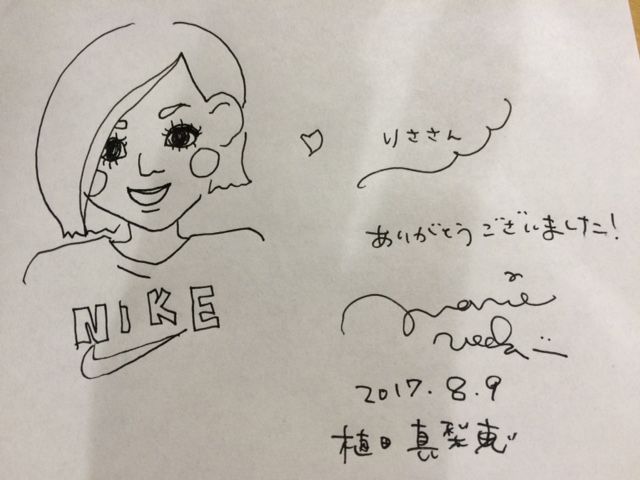 NIKE
りささん
ありがとうございました!
marie
ueda
2017.8.9
植田真梨恵